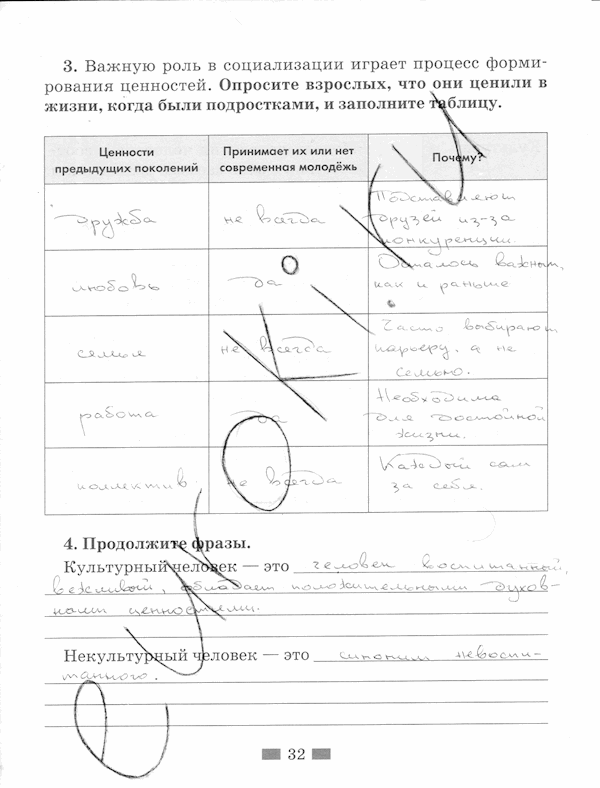 3. Важную роль в социализации играет процесс форми-
рования ценностей. Опросите взрослых, что они ценили в
жизни, когда были подростками, и заполните таблицу.
Ценности
предыдущих поколений
Принимает их или нет
современная молодёжь
Почему?
дружба
не всегда
Подставляют
друзей из-за
конкуренции.
любовь
да
Осталось важным,
как и раньше
семья
не всегда
Часто выбирают
карьеру, а не
семью.
работа
да
Необходима
для достойной
жизни.
коллектив
не всегда
Каждый сам
за себя.
4. Продолжите фразы.
Культурный человек — это человек воспитанный,
вежливый, обладает положительными духов-
ными ценностями.
Некультурный человек — это синоним невоспи-
танного.
32